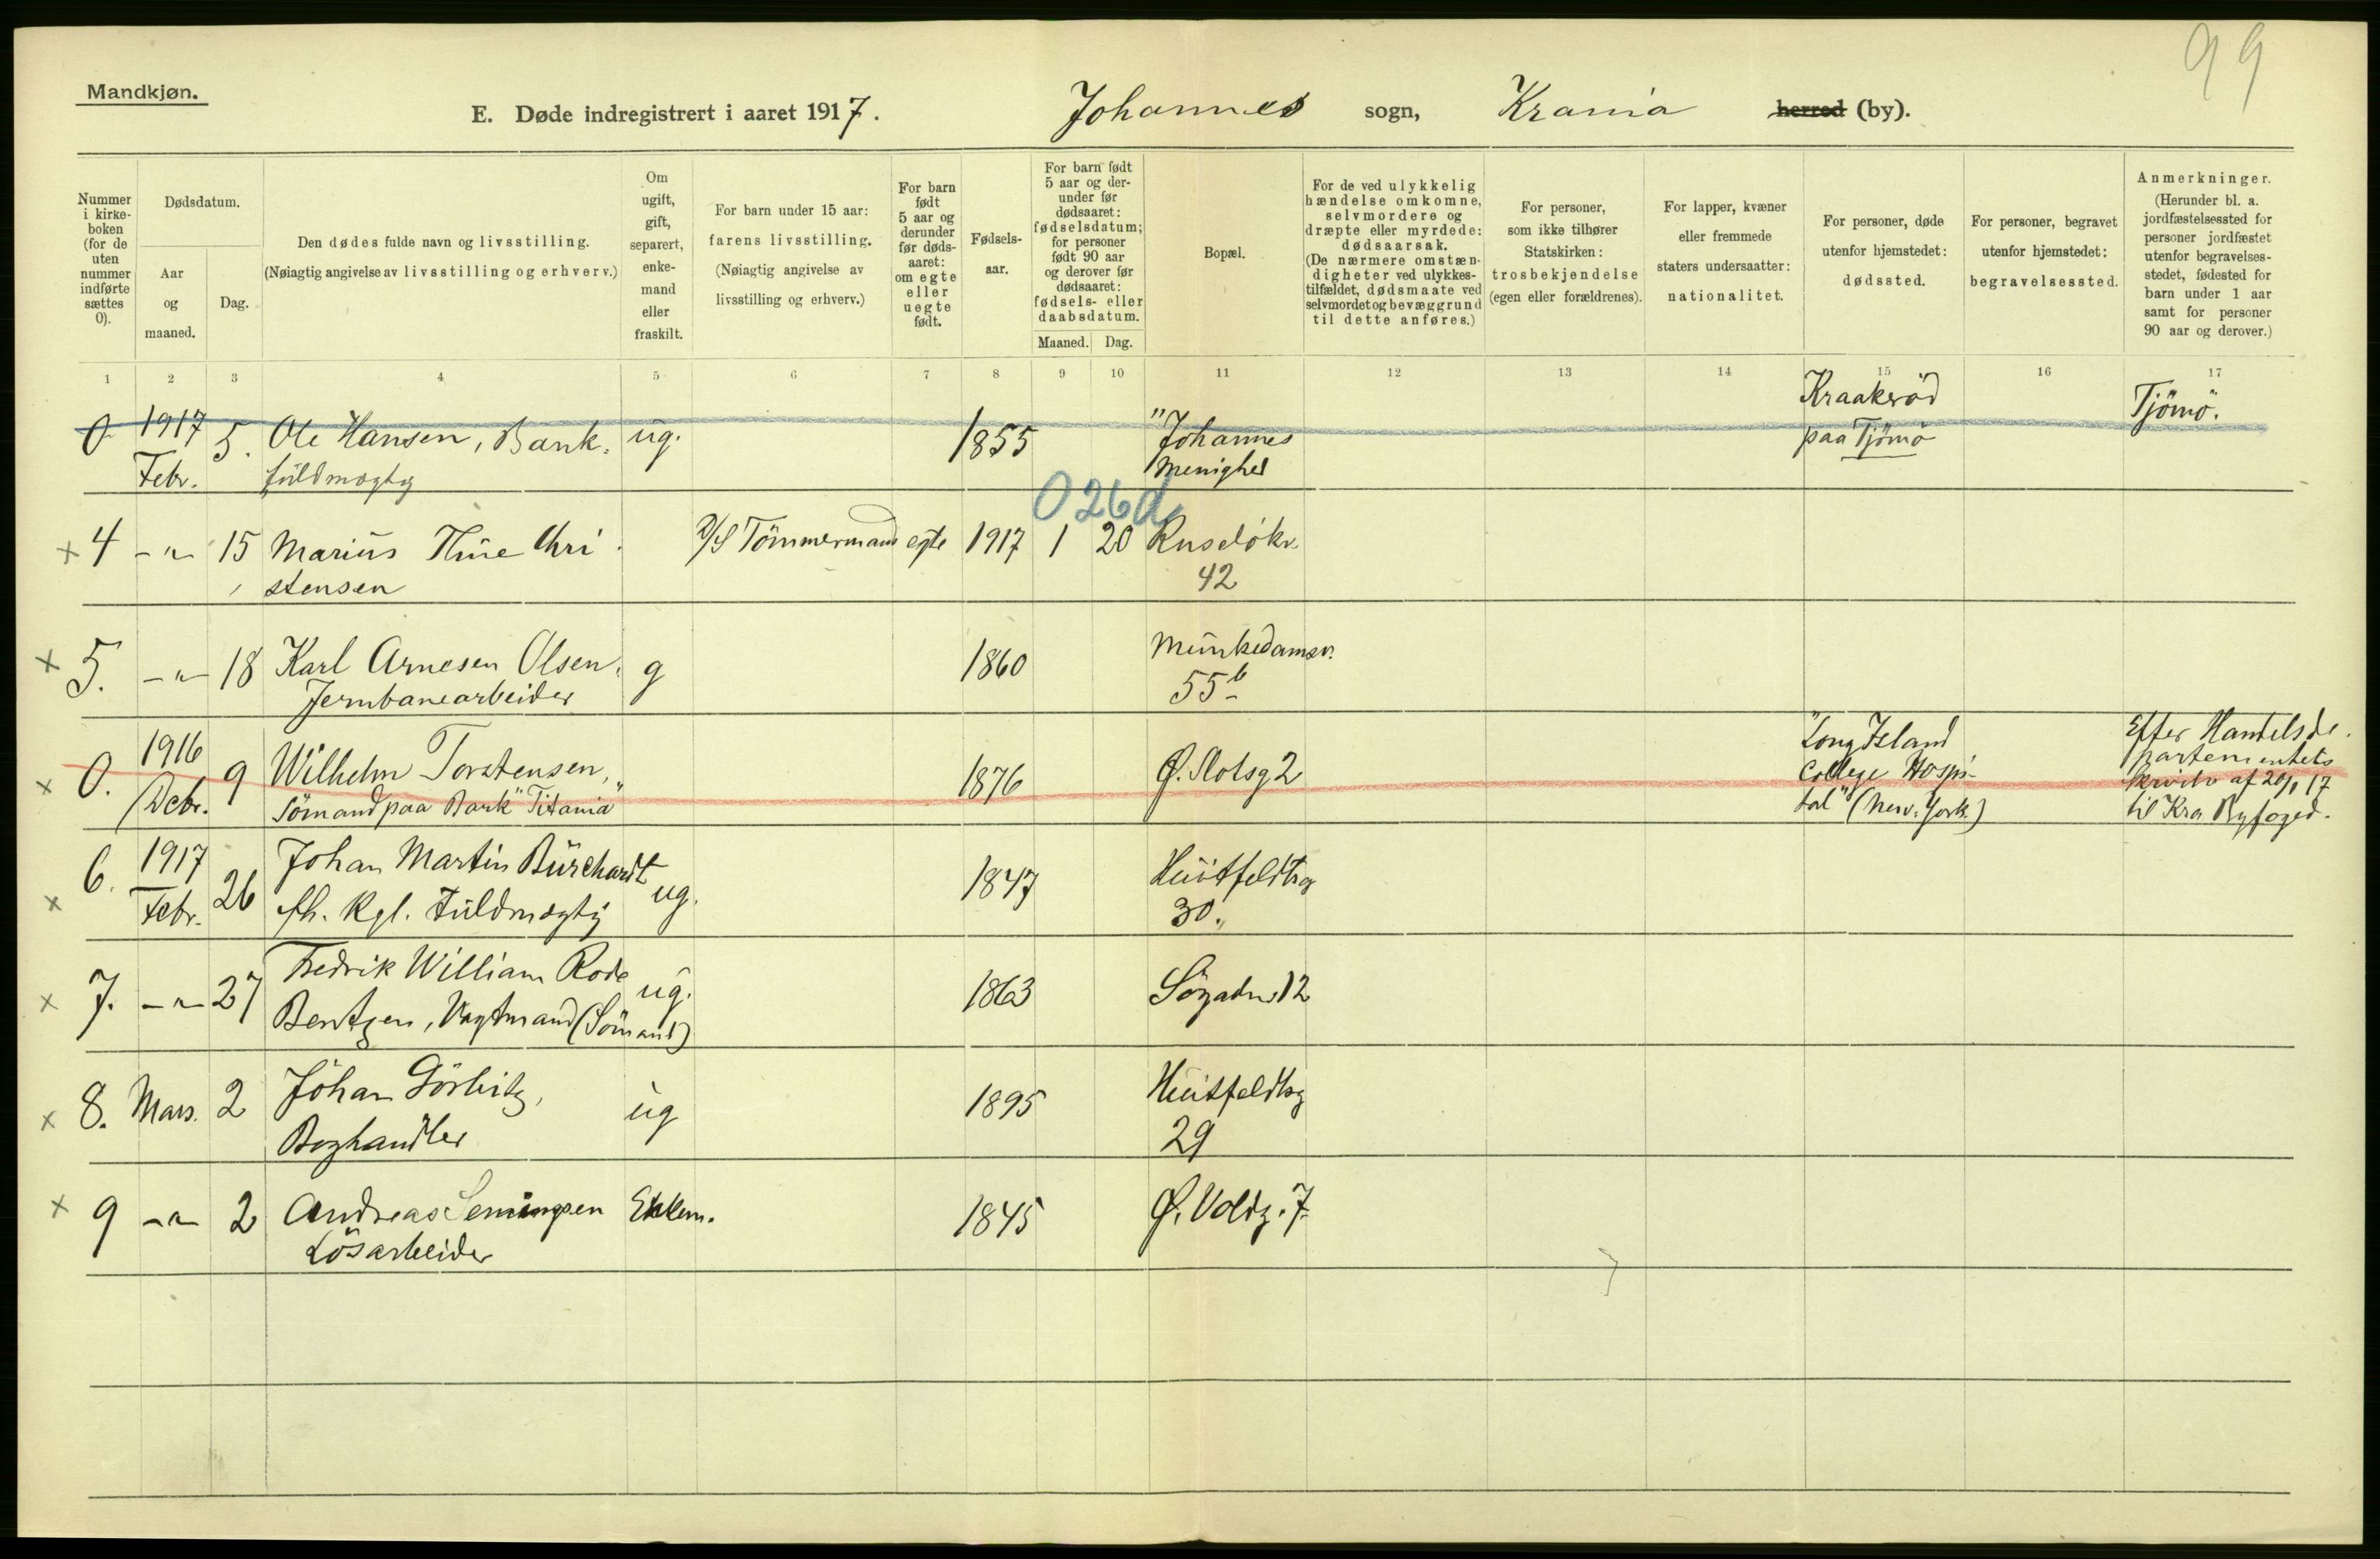 99
Mandkjøn.
E. Døde indregistrert i aaret 1917. Johannes sogn, Krania herred (by).
Nummer i kirke-boken (for de uten nummer indførte sættes 0).
Dødsdatum.
Aar og maaned.
Dag.
Den dødes fulde navn og livsstilling.
(Nøiagtig angivelse av livsstilling og erhverv.)
Om ugift, gift, separert, enke-mand eller fraskilt.
For barn under 15 aar: farens livsstilling.
(Nøiagtig angivelse av livsstilling og erhverv.)
For barn født 5 aar og derunder før døds-aaret: om egte eller uegte født.
Fødsels-aar.
For barn født 5 aar og der-under før dødsaaret: fødselsdatum; for personer født 90 aar og derover før dødsaaret: fødsels- eller daabsdatum.
Maaned. Dag.
Bopæl.
For de ved ulykkelig hændelse omkomne, selvmordere og dræpte eller myrdede: dødsaarsak.
(De nærmere omstæn-digheter ved ulykkes-tilfældet, dødsmaate ved selvmordet og bevæggrund til dette anføres.)
For personer, som ikke tilhører Statskirken: trosbekjendelse (egen eller forældrenes).
For lapper, kvæner eller fremmede staters undersaatter: nationalitet.
For personer, døde utenfor hjemstedet: dødssted.
For personer, begravet utenfor hjemstedet: begravelsessted.
Anmerkninger.
(Herunder bl. a. jordfæstelsessted for personer jordfæstet utenfor begravelses-stedet, fødested for barn under 1 aar samt for personer 90 aar og derover.)
1 2 3 4 5 6 7 8 9 10 11 12 13 14 15 16 17
0 1917 5. Ole Hansen, Bank. ug. 1855 "Johannes Kraakerød Tjömö.
Febr. fuldmægtig Menighed paa Tjömö
026d
× 4 -"- 15 Marius Thue Chri D/S Tömmermand egte 1917 1 20 Ruselökv.
stensen 42
× 5. -"- 18 Karl Arnesen Olsen, g 1860 Munkedamsv.
Jernbanearbeider 55b
× 0. 1916 9 Wilhelm Torstensen, 1876 Ø. Slotsg 2 "Long Island Efter Handelsde.
Debr. Sömand paa Bark "Titania" College Hospi- partementets
tal" (New. York.) skrivelse af 20/1 17
til Kra Byfoged.
× 6. 1917 26 Johan Martin Bürchardt ug. 1847 Huitfeldtsg
Febr. fh. Kgl. Fuldmægtig 30.
× 7. -"- 27 Fredrik William Rode ug. 1863 Søgadn 12
Bentzen, Vagtmand (Sömand)
× 8. Mars. 2 Johan Görbitz, ug 1895 Huitfeldtsg
Boghandler 29
× 9 -"- 2 Andreas Semingsen Enkem. 1845 Ø. Voldg. 7.
Lösarbeider